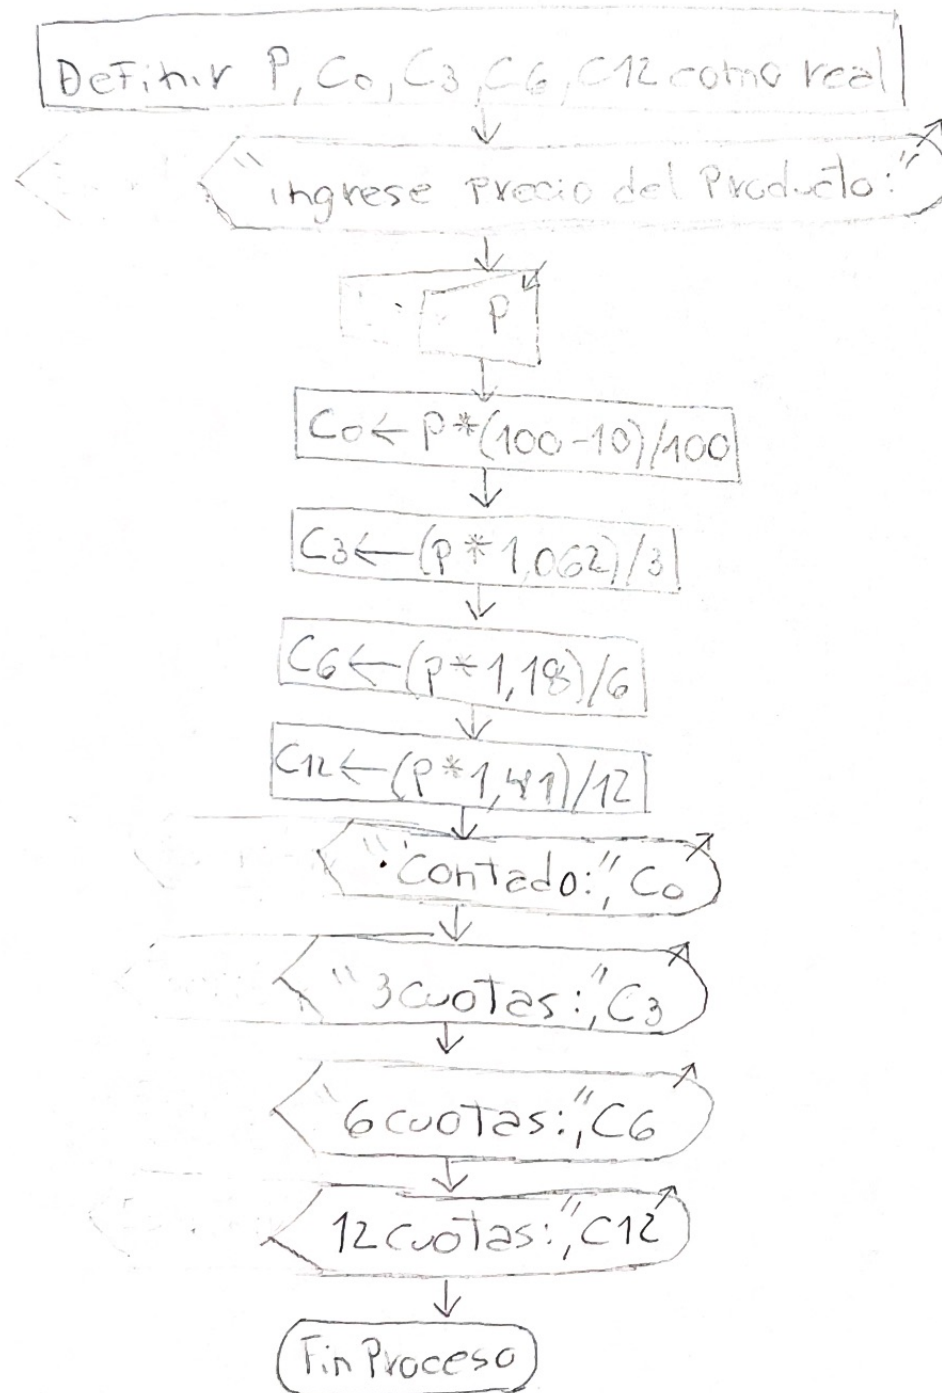 Definir P, Co, C3, C6, C12 como real
"ingrese precio del Producto:"
P
Co ← P*(100-10)/100
C3 ← (P*1,062)/3
C6 ← (P*1,18)/6
C12 ← (P*1,41)/12
"Contado:", Co
"3 cuotas:", C3
"6 cuotas:", C6
12 cuotas:", C12
Fin Proceso